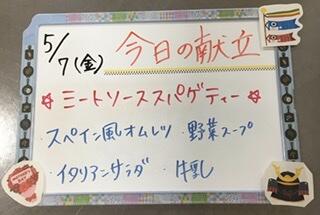 5/7(金) 今日の献立
☆ミートソーススパゲティー☆
・スペイン風オムレツ ・野菜スープ
・イタリアンサラダ ・牛乳